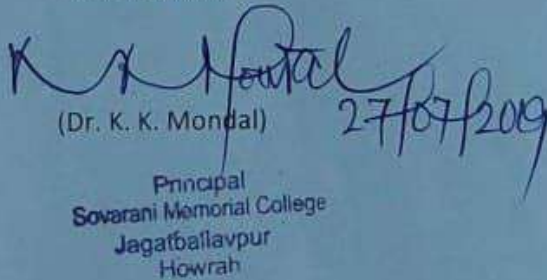 K K Mondal
27/07/2019
(Dr. K. K. Mondal)
Principal
Sovarani Memorial College
Jagatballavpur
Howrah